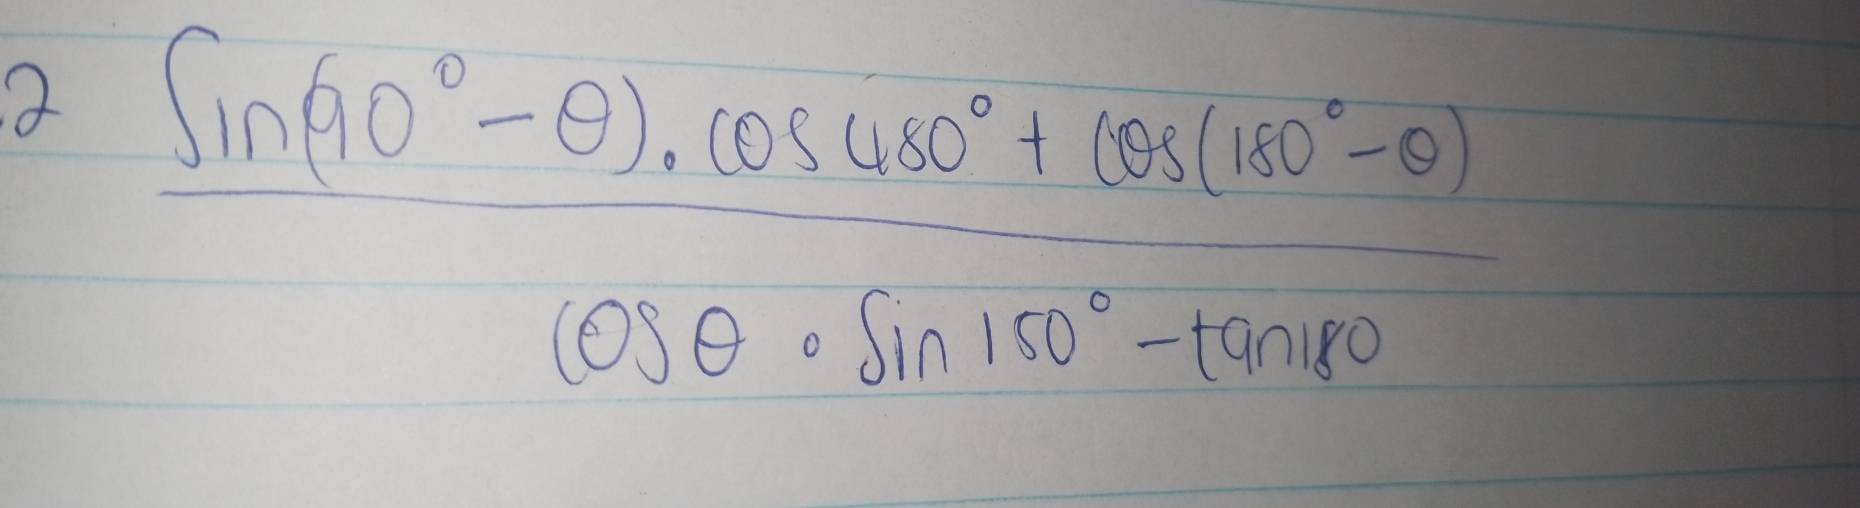 .2 Sin(90° - θ). cos 480° + cos(180° - θ)
cos θ . Sin 150° - tan180